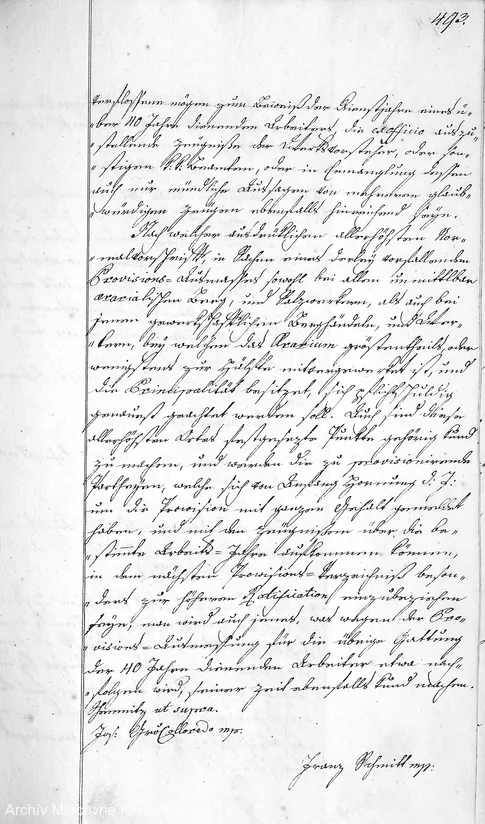 493.
verflossene mögen zum Beweiß der Dienstjahre eines ü-
„ber 40 Jahre dienenden Arbeiters, die ex officio auszu-
„stellende Zeugniße der Werksvorsteher, oder son-
„stigen k: k: Beamten, oder in Ermanglung dessen
auch nur mündliche Aussagen von mehreren glaub-
„würdigen Zeugen ebenfalls hinreichend seyn.
Nach welcher ausdrücklichen allerhöchsten Nor-
„malvorschrift, in Sachen eines derley vorfallenden
Provisions-Ausmaßes sowohl bei allen unmittelbar
ärarialischen Berg, und Salzwerkern, als auch bei
jenen gewerkschaftlichen Berghändeln, und Wer-
„kern, bey welchen das Ärarium größtentheils, oder
wenigstens zur Hälfte mitgewerket ist, und
die Principalität besitzet, sich pflichtschuldig
genauest geachtet werden soll. Auch sind diese
allerhöchsten Ortes festgesezte Punkte gehörig kund
zu machen, und werden die zu provisionirende
Partheyen, welche sich von Anfang Hornung d: J:
um die Provision mit ganzen Gehalt gemeldet
haben, und mit den Zeugnißen über die be-
„stimmte Arbeits-Jahre aufkommen können,
in dem nächsten Provisions-Verzeichniß beson-
„ders zur höheren Ratification einzubeziehen
seyn, man wird auch jenes, was wegen der Pro-
„visions-Ausmessung für die übrige Gattung
der 40 Jahre dienenden Arbeiter etwa nach-
„folgen wird, seiner Zeit ebenfalls kund machen.
Schemnitz ut supra.
Jos: Gr: Colloredo mp.
Franz Schmitt mp.